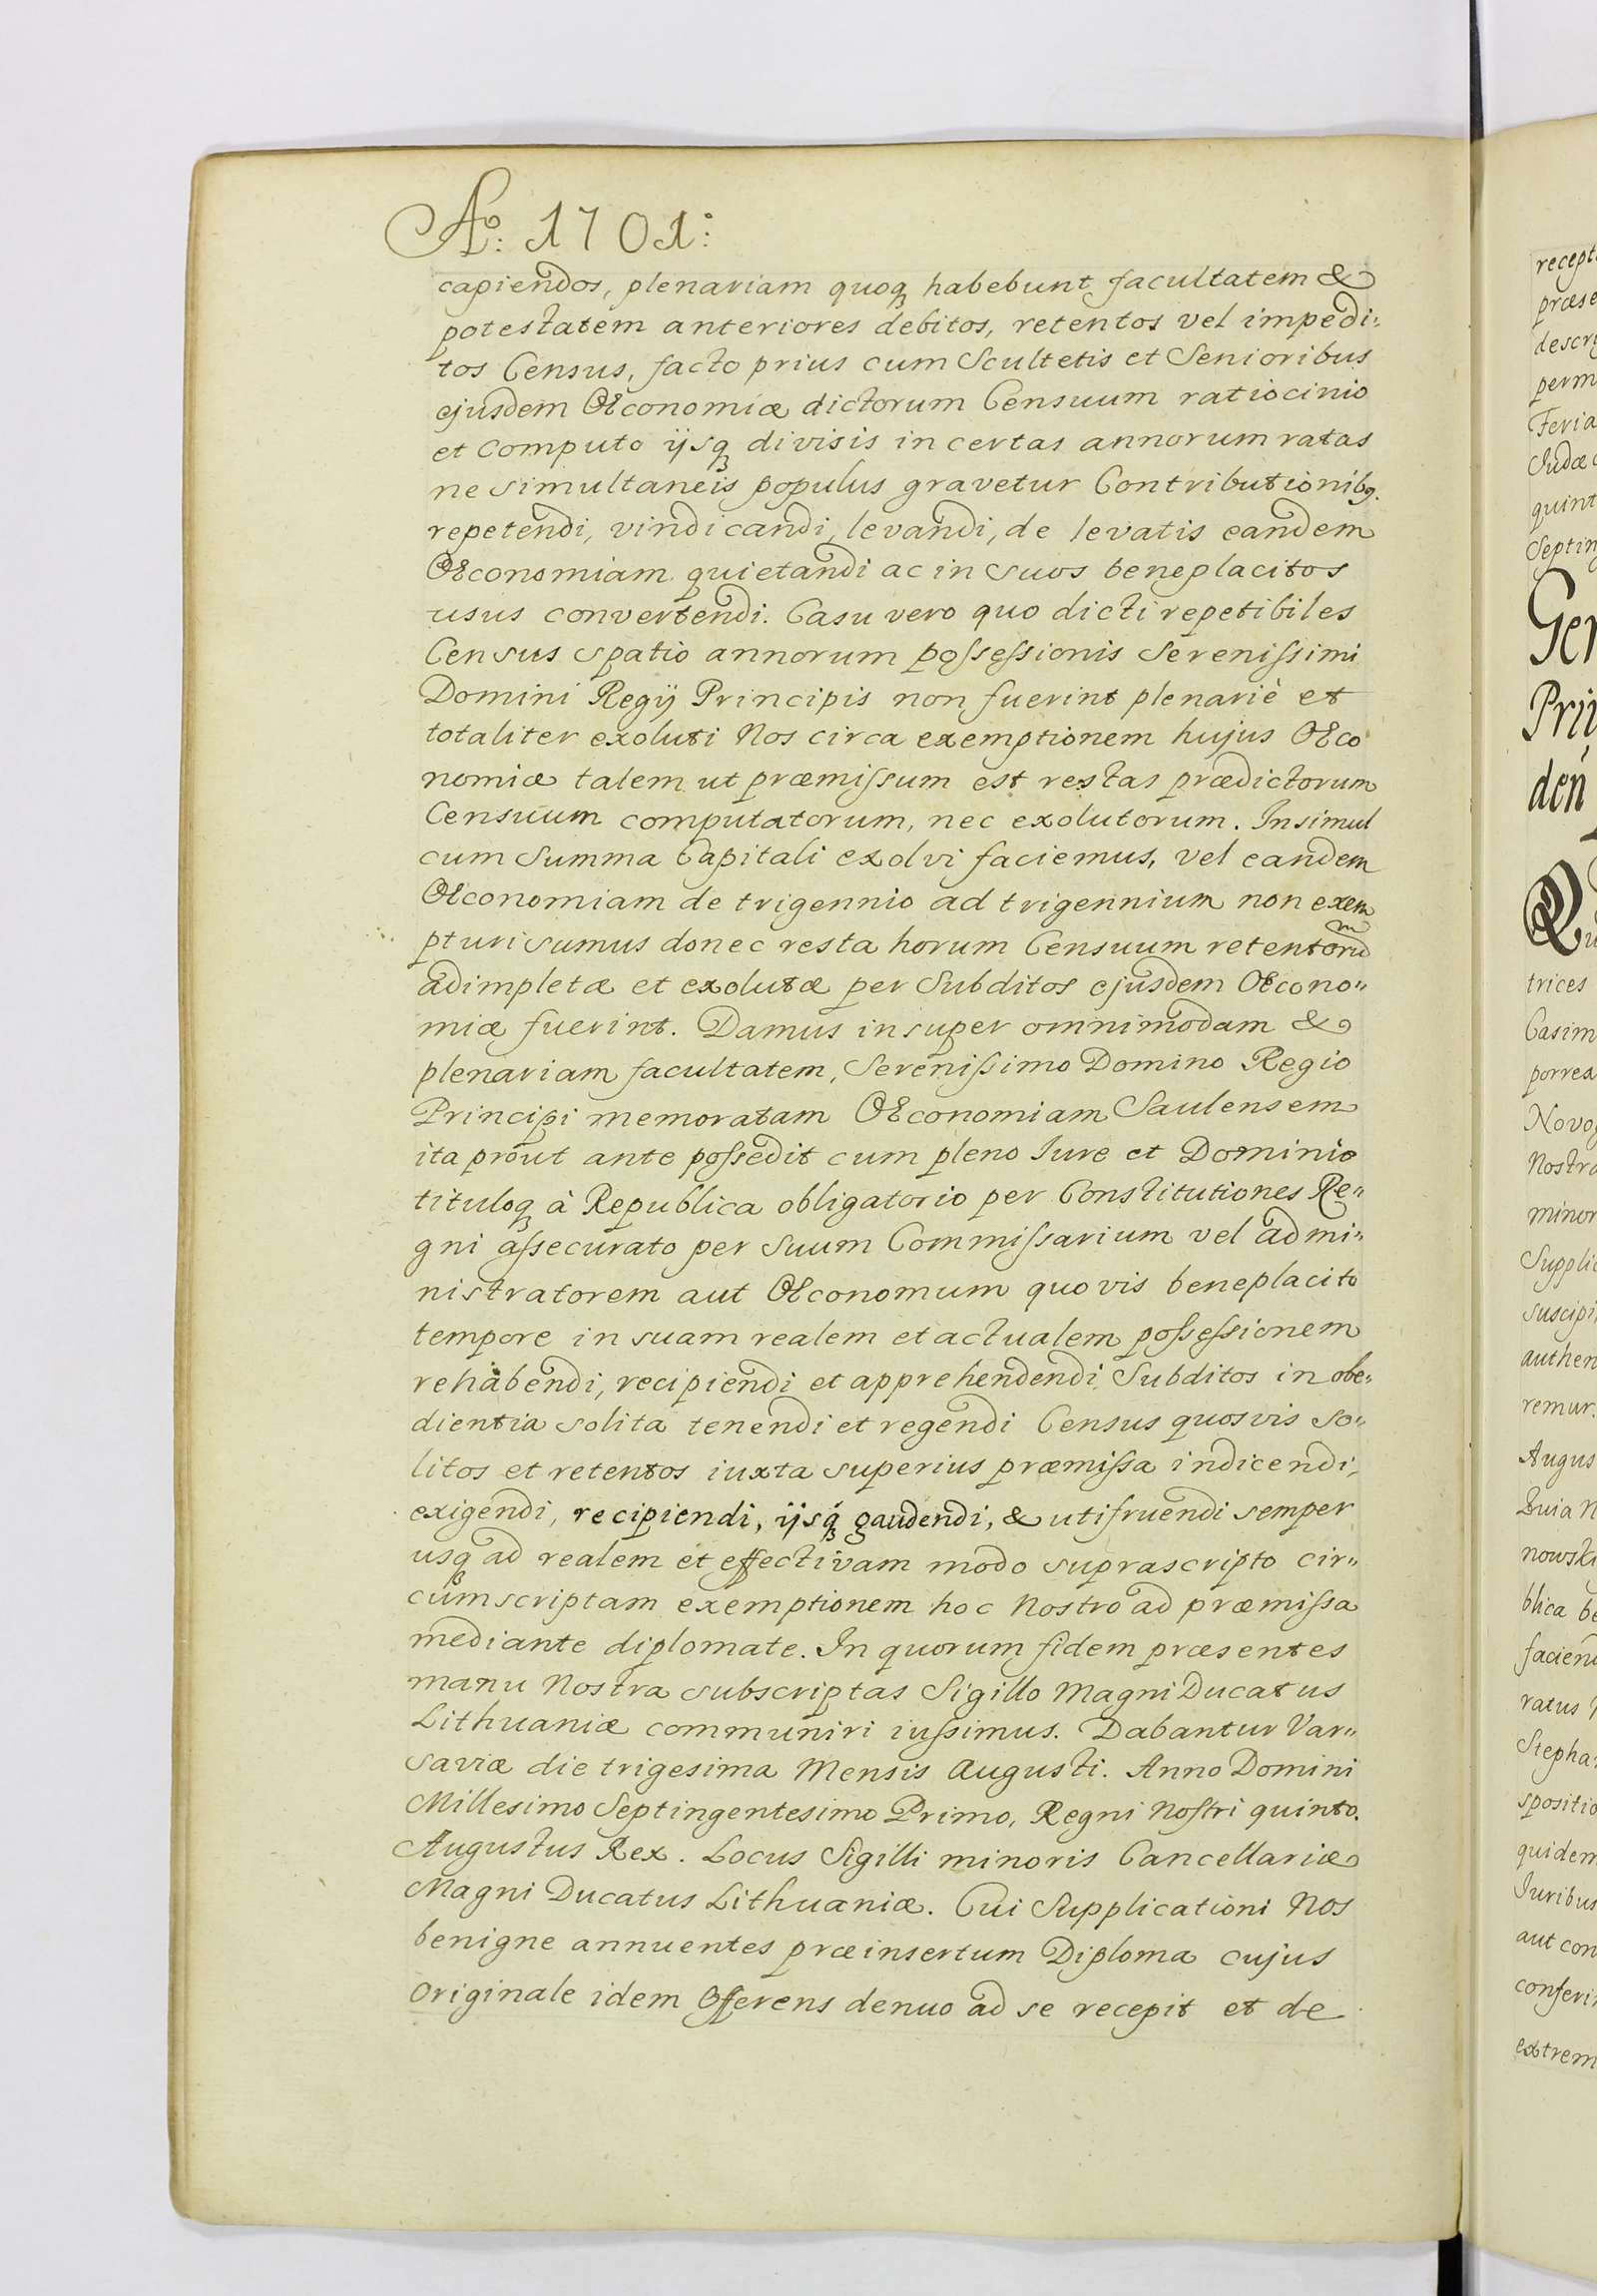 Aº: 1701:
capiendos, plenariam quoq habebunt facultatem &
potestatem anteriores debitos, retentos vel impedi:
tos Census, facto prius cum Scultetis et Senioribus
ejusdem Œconomiæ dictorum Censuum ratiocinio
et Computo ijsq divisis in certas annorum ratas
ne simultaneis populus gravetur Contributionibq.
repetendi, vindicandi, levandi, de levatis eandem
Œconomiam quietandi ac in suos beneplacitos
usus convertendi. Casu vero quo dicti repetibiles
Census spatio annorum poſseſsionis Sereniſsimi
Domini Regij Principis non fuerint plenariè et
totaliter exoluti Nos circa exemptionem hujus Œco
nomiæ talem ut præmiſsum est restas prædictorum
Censuum computatorum, nec exolutorum. Insimul
cum Summa Capitali exolvi faciemus, vel eandem
Œconomiam de trigennio ad trigennium non exem
pturi sumus donec resta horum Censuum retentorum
adimpletæ et exolutæ per Subditos ejusdem Œcono"
miæ fuerint. Damus insuper omnimodam &
plenariam facultatem, Sereniſsimo Domino Regio
Principi memoratam Œconomiam Saulensem
ita prout ante poſsedit cum pleno Iure et Dominio
tituloq à Republica obligatorio per Constitutiones Re"
gni aſsecurato per suum Commiſsarium vel admi"
nistratorem aut Œconomum quovis beneplacito
tempore in suam realem et actualem poſseſsionem
rehabendi, recipiendi et apprehendendi Subditos in obe"
dientia solita tenendi et regendi Census quosvis so"
litos et retentos iuxta superius præmiſsa indicendi,
exigendi, recipiendi, ijsq gaudendi, & utifruendi semper
usq ad realem et effectivam modo suprascripto cir"
cumscriptam exemptionem hoc Nostro ad præmiſsa
mediante diplomate. In quorum fidem præsentes
manu Nostra subscriptas Sigillo Magni Ducatus
Lithuaniæ communiri iuſsimus. Dabantur Var"
saviæ die trigesima Mensis Augusti. Anno Domini
Millesimo Septingentesimo Primo, Regni Noſtri quinto.
Augustus Rex. Locus Sigilli minoris Cancellariæ
Magni Ducatus Lithuaniæ. Cui Supplicationi Nos
benigne annuentes præinsertum Diploma cujus
Originale idem Offerens denuo ad se recepit et de